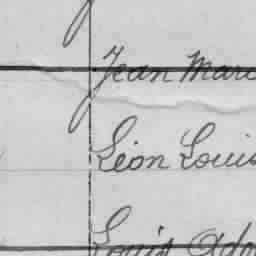 Jean Marc
Léon Louis
Louis Ado